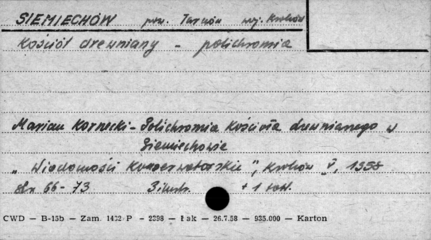 SIEMIECHÓW pow. Tarnów woj. Kraków
Kościół drewniany - polichromia
Marian Kornecki - Polichromia Kościoła drewnianego w
Siemiechowie
"Wiadomości Konserwatorskie", Kraków 1958
66-73 3 ilustr. + 1 tabl.
CWD — B-15b — Zam. 1432 P - 2398 - I ak — 26.7.58 — 935.000 — Karton